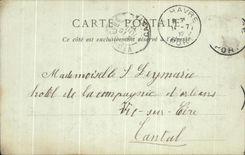 CARTE POSTALE
Ce côté est exclusivement réservé à l'adresse
HAVRE
PORT
Mademoiselle S Leymarie
hotel de la compagnie d'orleans
Vic-sur-Cère
Cantal